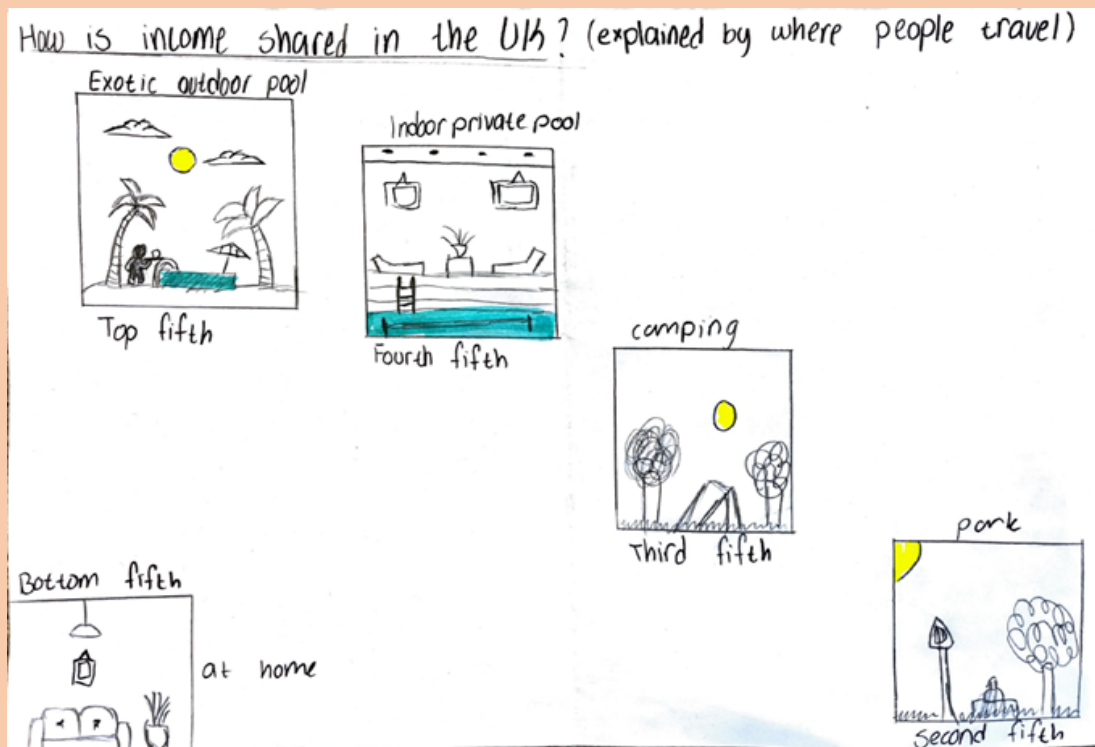 How is income shared in the UK? (explained by where people travel)
Exotic outdoor pool
Top fifth
Indoor private pool
Fourth fifth
camping
Third fifth
park
Second fifth
Bottom fifth
at home